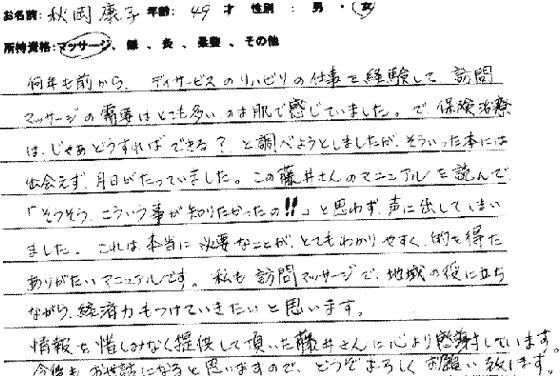 お名前: 秋岡 康子 年齢: 49 才 性別 : 男 ・ 女
所持資格: マッサージ、鍼 、 灸 、 柔整 、 その他
何年も前から、デイサービスのリハビリの仕事を経験して 訪問
マッサージの需要はとても多いのは肌で感じていました。で、保険治療
は、じゃあどうすればできる？と調べようとしましたが、そういった本には
出会えず、月日がたっていました。この藤井さんのマニュアルを読んで、
「そうそう、こういう事が知りたかったの!!」と思わず、声に出してしまい
ました。これは本当に必要なことが、とてもわかりやすく、的を得た
ありがたいマニュアルです。私も訪問マッサージで、地域の役に立ち
ながら、経済力もつけていきたいと思います。
情報を惜しみなく提供して頂いた藤井さんに心より感謝しています。
今後もお世話になると思いますので、どうぞよろしくお願い致します。